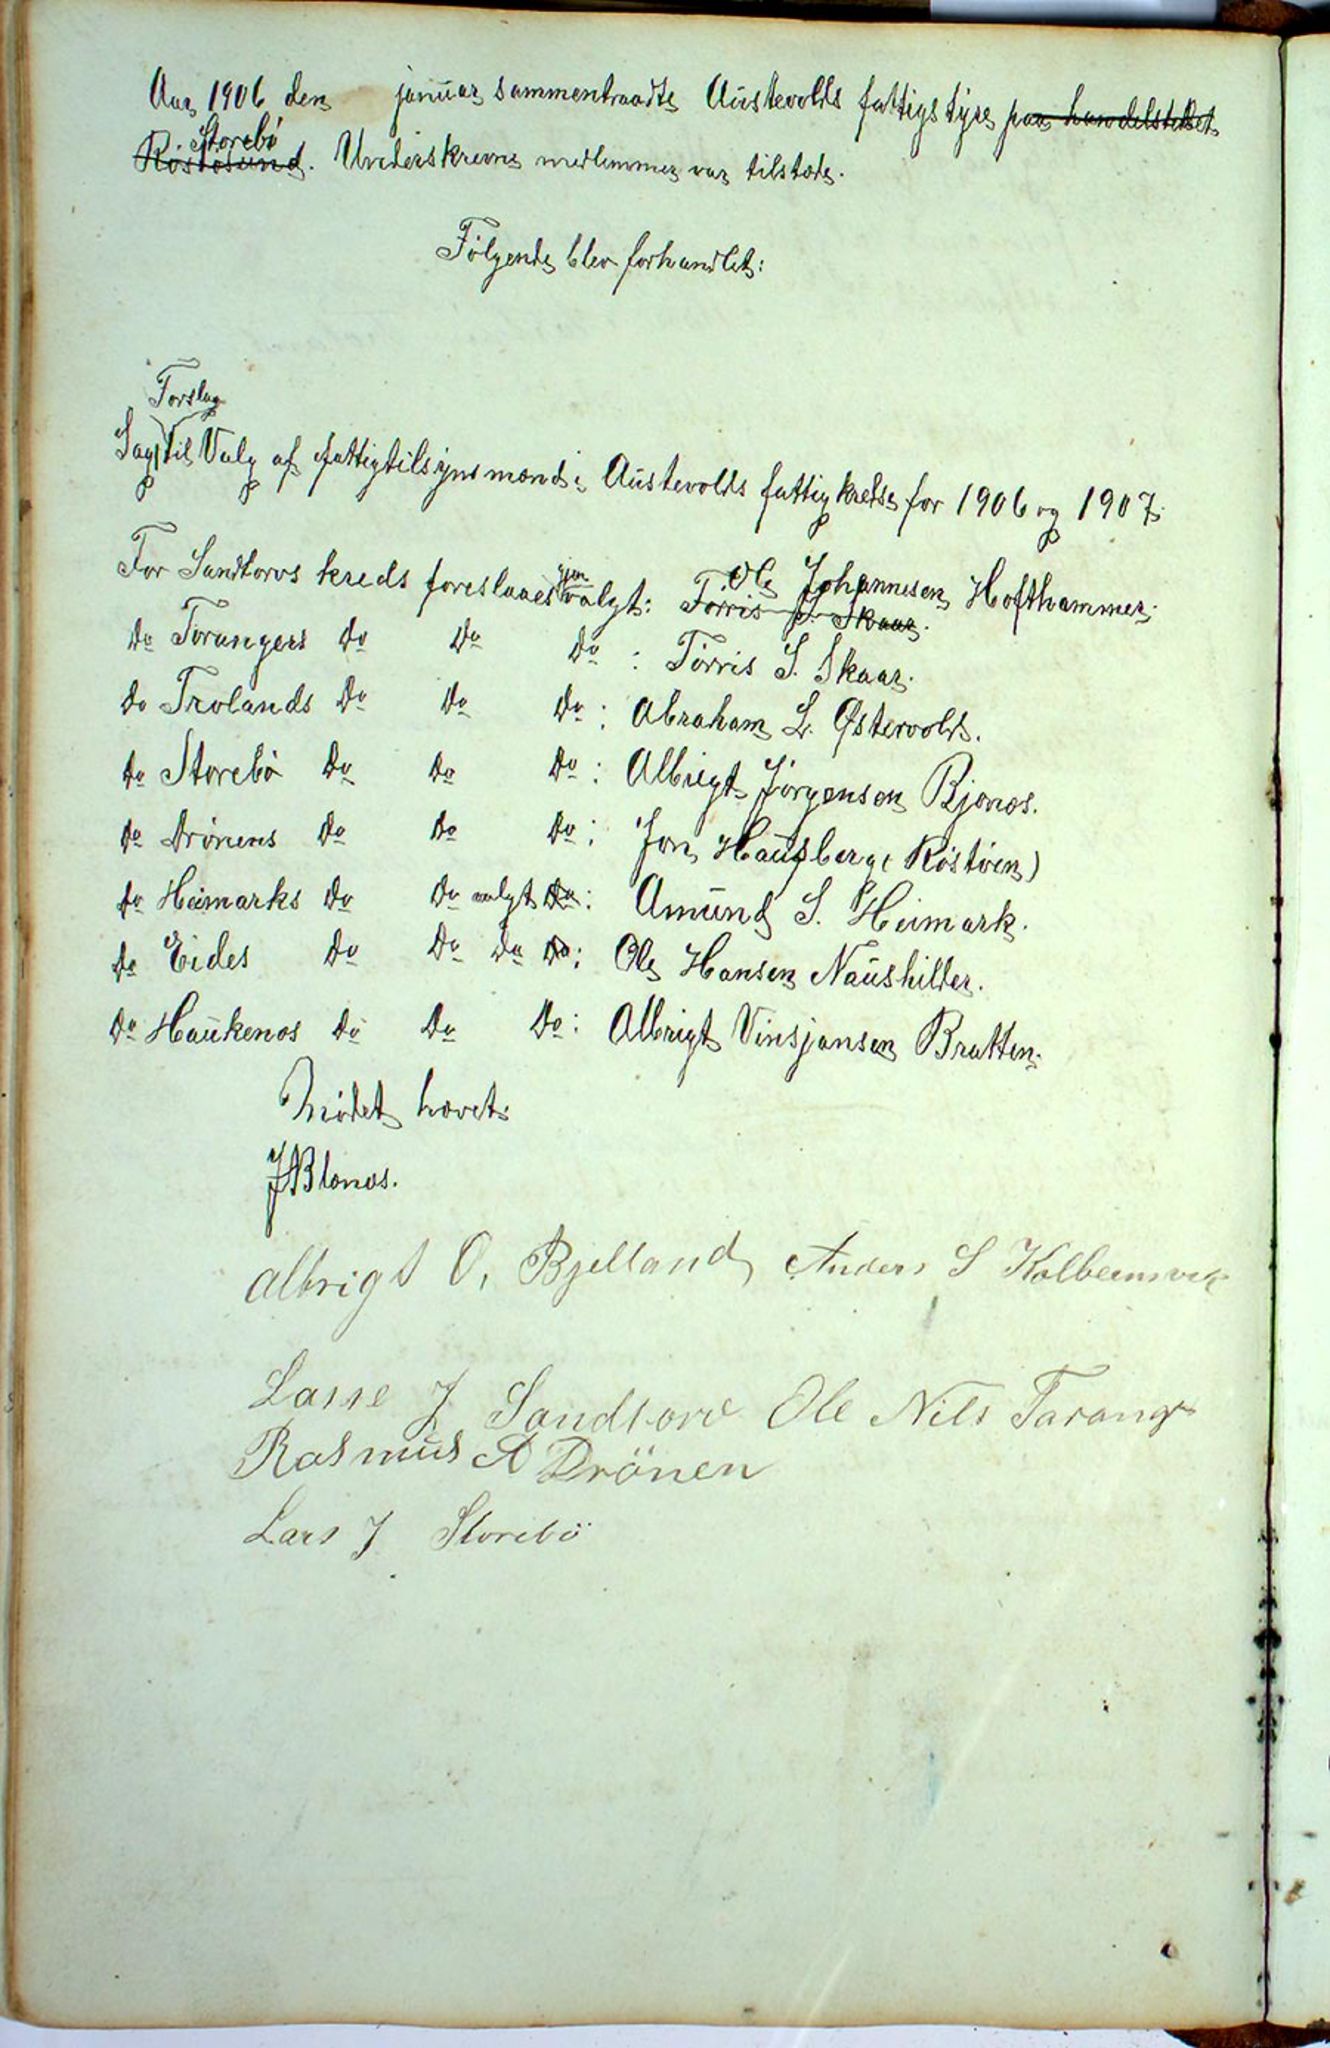 Aar 1906 den januar sammentraadte Austevolds fattigstyre paa handelstedet
Storebö
Röstösund. Underskrevne medlemmer var tilstede.
Følgende blev forhandlet:
Forslag
Sag til Valg af fattigtilsynsmænd i Austevolds fattigkredse for 1906 og 1907.
For Sandtorvs kreds foreslaaes gjenvalgt: Ole Johannesen Hofthammer.
Törris S. Skaar.
do Torangers do do do : Törris S. Skaar.
do Trolands do do do : Abraham L. Østervold.
do Storebö do do do : Albrigt Jörgensen Bjønæs.
do Drönens do do do : Jon Hausberg (Röstöen)
do Heimarks do do valgt do : Amund S. Heimark.
do Eides do do do do : Ole Hansen Naushilder.
do Haukenæs do do do : Albrigt Vinsjansen Bratten.
Mödet hævet.
J A Blænæs.
Albrigt O, Bjelland Anders S Kolbeinsvik
Lasse J Sandtorv Ole Nils Tarang
Rasmus A Drönen
Lars J Storebö